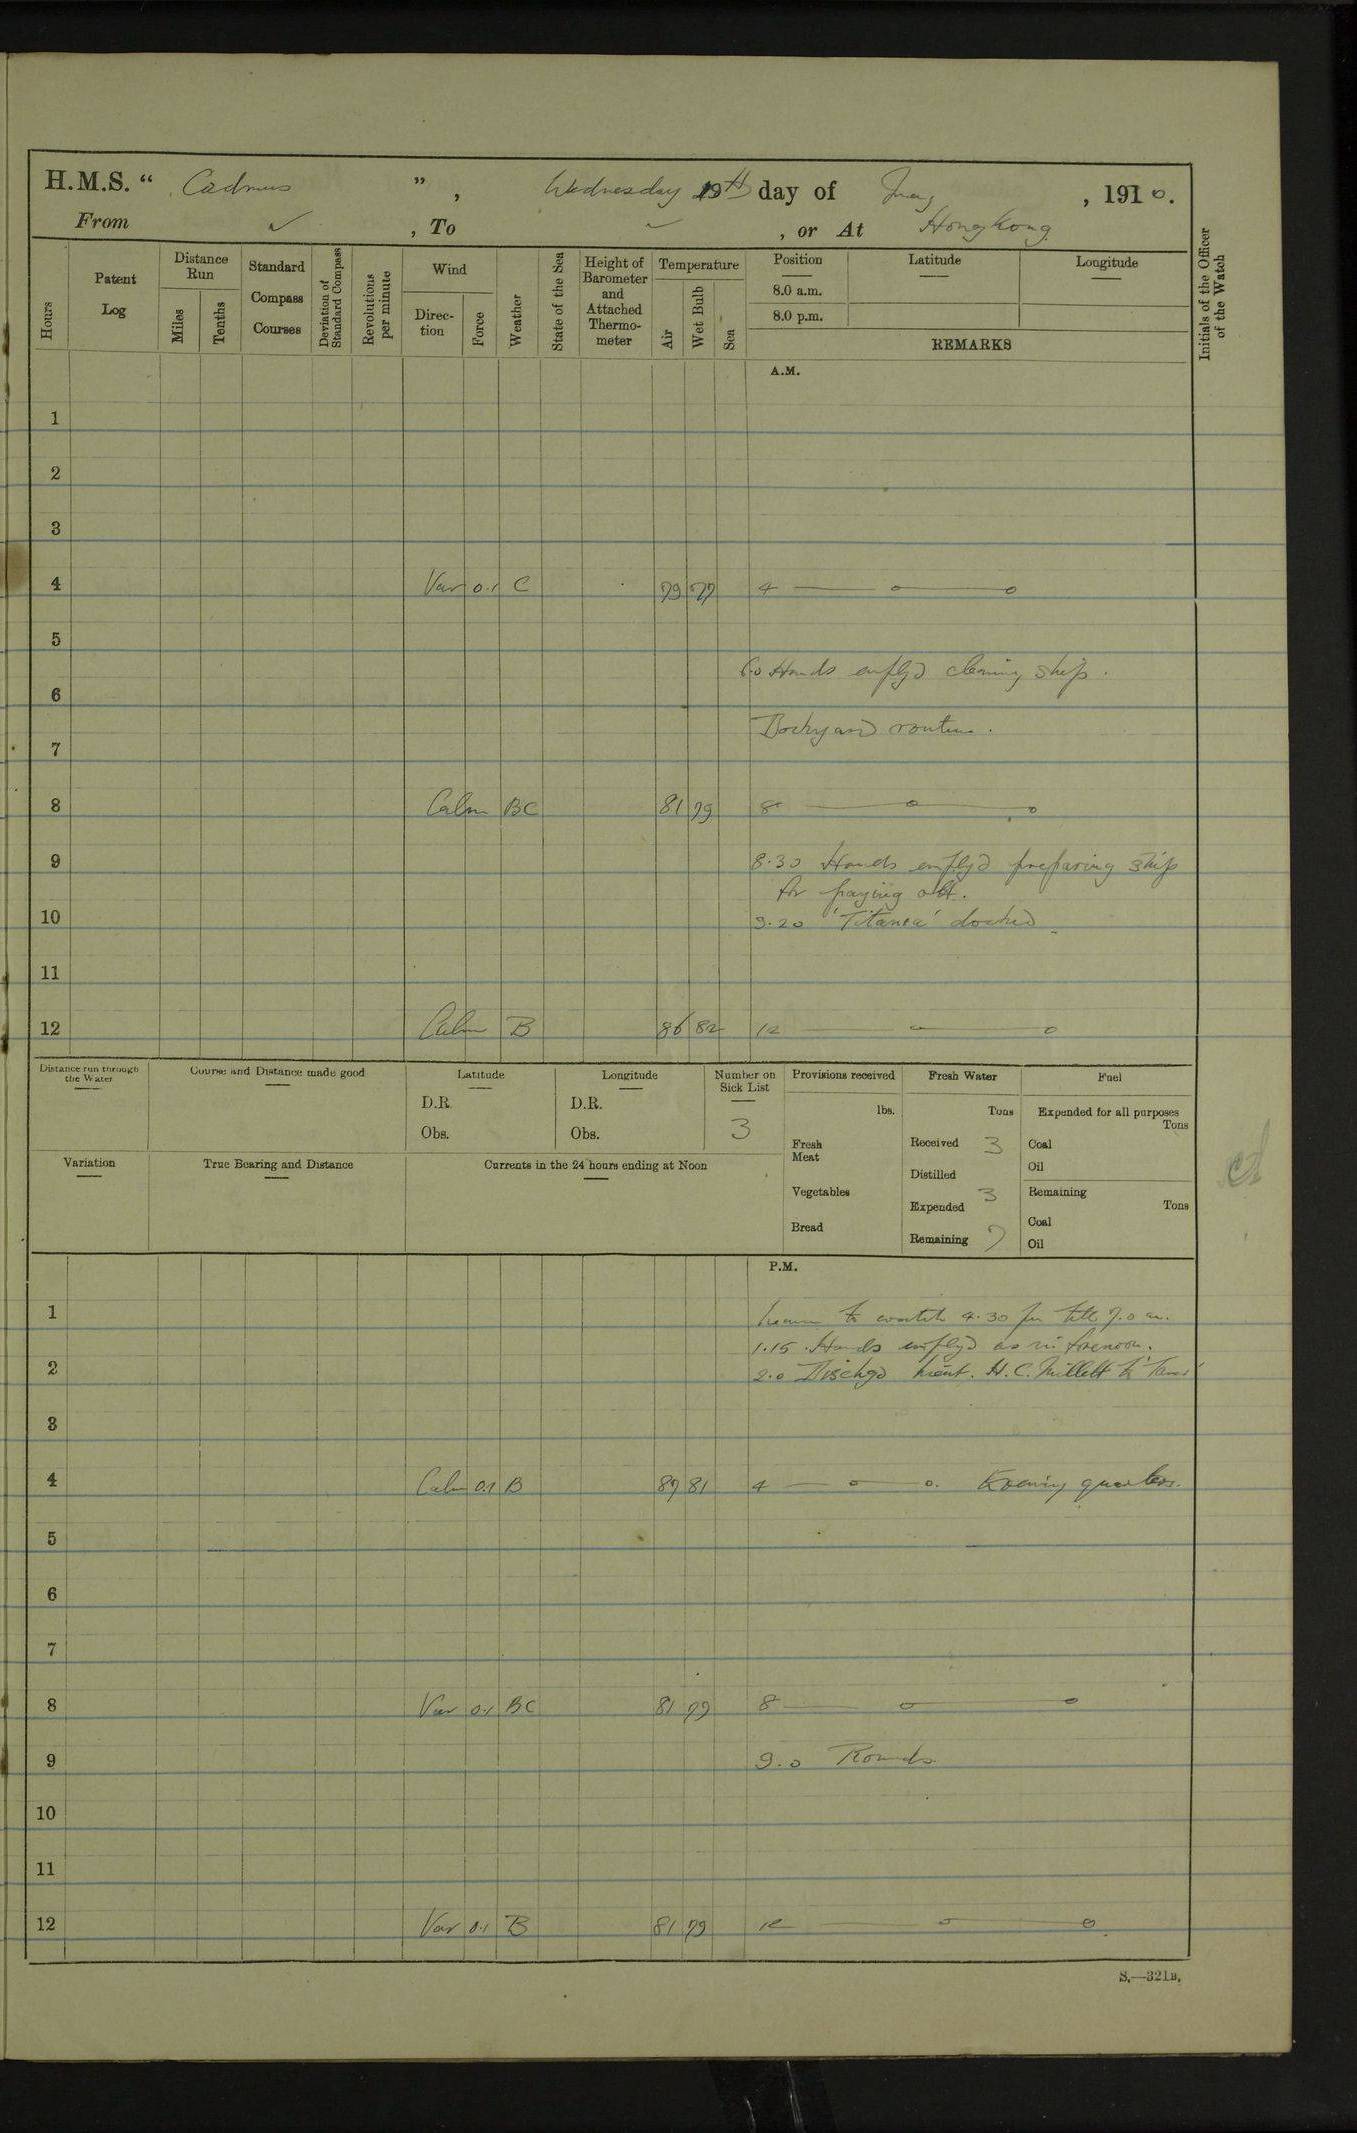 H.M.S. “ Cadmus ” , Wednesday 19th day of , 1910.
From ✓ , To ✓ , or At Hongkong.
Hours
Patent Log
Distance Run
Miles
Tenths
Standard Compass Courses
Deviation of Standard Compass
Revolutions per minute
Wind
Direc-tion
Force
Weather
State of the Sea
Height of Barometer and Attached Thermo-meter
Temperature
Air
Wet Bulb
Sea
Position
8.0 a.m.
8.0 p.m.
Latitude
Longitude
REMARKS
Initials of the Officer of the Watch
A.M.
1
2
3
4 Var 0.1 C 79 77 4 — o — o
5
6.0 Hands emplyd cleaning ship.
6
Dockyard routine.
7
8 Calm BC 81 79 8 — o — o
9 8.30 Hands emplyd preparing ship
for paying off.
10 9.20 'Titania' docked
11
12 Calm B 86 82 12 — o — o
Distance run through the Water
Course and Distance made good
Latitude
D.R.
Obs.
Longitude
D.R.
Obs.
Number on Sick List
3
Provisions received
lbs.
Fresh Meat
Vegetables
Bread
Fresh Water
Tons
Received 3
Distilled
Expended 3
Remaining 7
Fuel
Expended for all purposes
Tons
Coal
Oil
Remaining
Tons
Coal
Oil
Variation
True Bearing and Distance
Currents in the 24 hours ending at Noon
P.M.
1 Leave to watch 4.30 pm till 7.0 am.
1.15 Hands emplyd as in forenoon.
2 2.0 Dischgd Lieut. H. C. Millett to
3
4 Calm 0.1 B 87 81 4 — o — o. Evening quarters.
5
6
7
8 Var 0.1 BC 81 79 8 — o — o
9 9.0 Rounds
10
11
12 Var 0.1 B 81 79 12 — o — o
S.—321B.